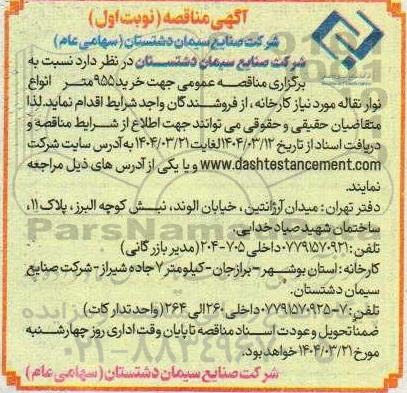 آگهی مناقصه (نوبت اول)
شرکت صنایع سیمان دشتستان (سهامی عام)
شرکت صنایع سیمان دشتستان در نظر دارد نسبت به
برگزاری مناقصه عمومی جهت خرید ۹۵۵متر انواع
نوار نقاله مورد نیاز کارخانه، از فروشندگان واجد شرایط اقدام نماید. لذا
متقاضیان حقیقی و حقوقی می توانند جهت اطلاع از شرایط مناقصه و
دریافت اسناد از تاریخ ۱۴۰۴/۰۳/۱۲ لغایت ۱۴۰۴/۰۳/۲۱ به آدرس سایت شرکت
www.dashtestancement.com و یا یکی از آدرس های ذیل مراجعه
نمایند.
دفتر تهران: میدان آرژانتین، خیابان الوند، نبش کوچه البرز، پلاک ۱۱،
ساختمان شهید صیاد خدایی.
تلفن: ۰۷۷۹۱۵۷۰۹۲۱ داخلی ۷۰۵-۲۰۴ (مدیر بازرگانی)
کارخانه: استان بوشهر- برازجان- کیلومتر ۷ جاده شیراز- شرکت صنایع
سیمان دشتستان.
تلفن: ۷-۰۷۷۹۱۵۷۰۹۲۵ داخلی ۲۶۰ الی ۲۶۴ (واحد تدارکات)
ضمنا تحویل و عودت اسناد مناقصه تا پایان وقت اداری روز چهارشنبه
مورخ ۱۴۰۴/۰۳/۲۱ خواهد بود.
شرکت صنایع سیمان دشتستان (سهامی عام)
ParsNamadData
۰۲۱-۸۸۳۴۹۶۷۰